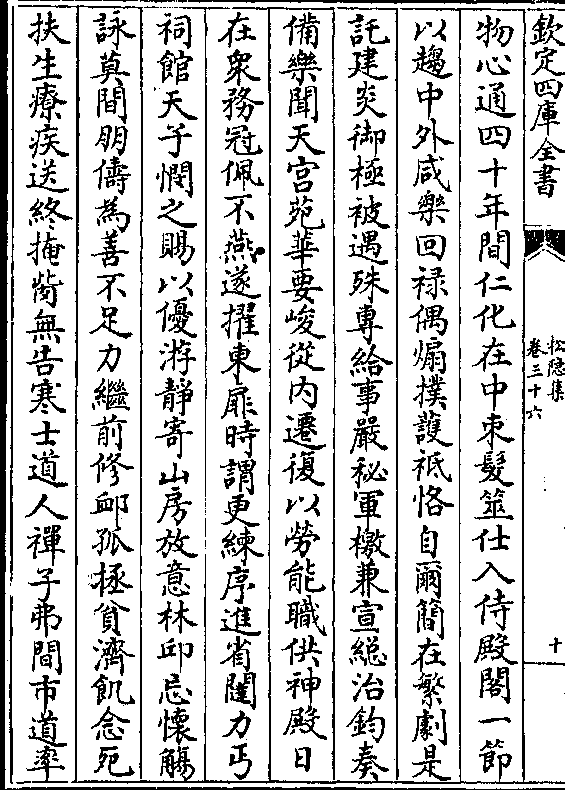 欽定四庫全書
松隐集
卷三十六
十
物心通四十年間仁化在中束髮筮仕入侍殿閣一節
以趨中外咸樂回禄偶煽撲護祗恪自爾簡在繁劇是
託建炎御極被遇殊專給事嚴秘軍檄兼宣緫治鈞奏
備樂聞天宫苑華要峻從内遷復以勞能職供神殿日
在衆務冠佩不燕遂擢東扉時謂更練序進省闥力丐
祠館天子憫之賜以優游靜寄山房放意林邱忘懐觴
詠奠間朋儔為善不足力繼前修邮孤拯貧濟飢念死
扶生療疾送終掩胔無告寒士道人禪子弗間市道率